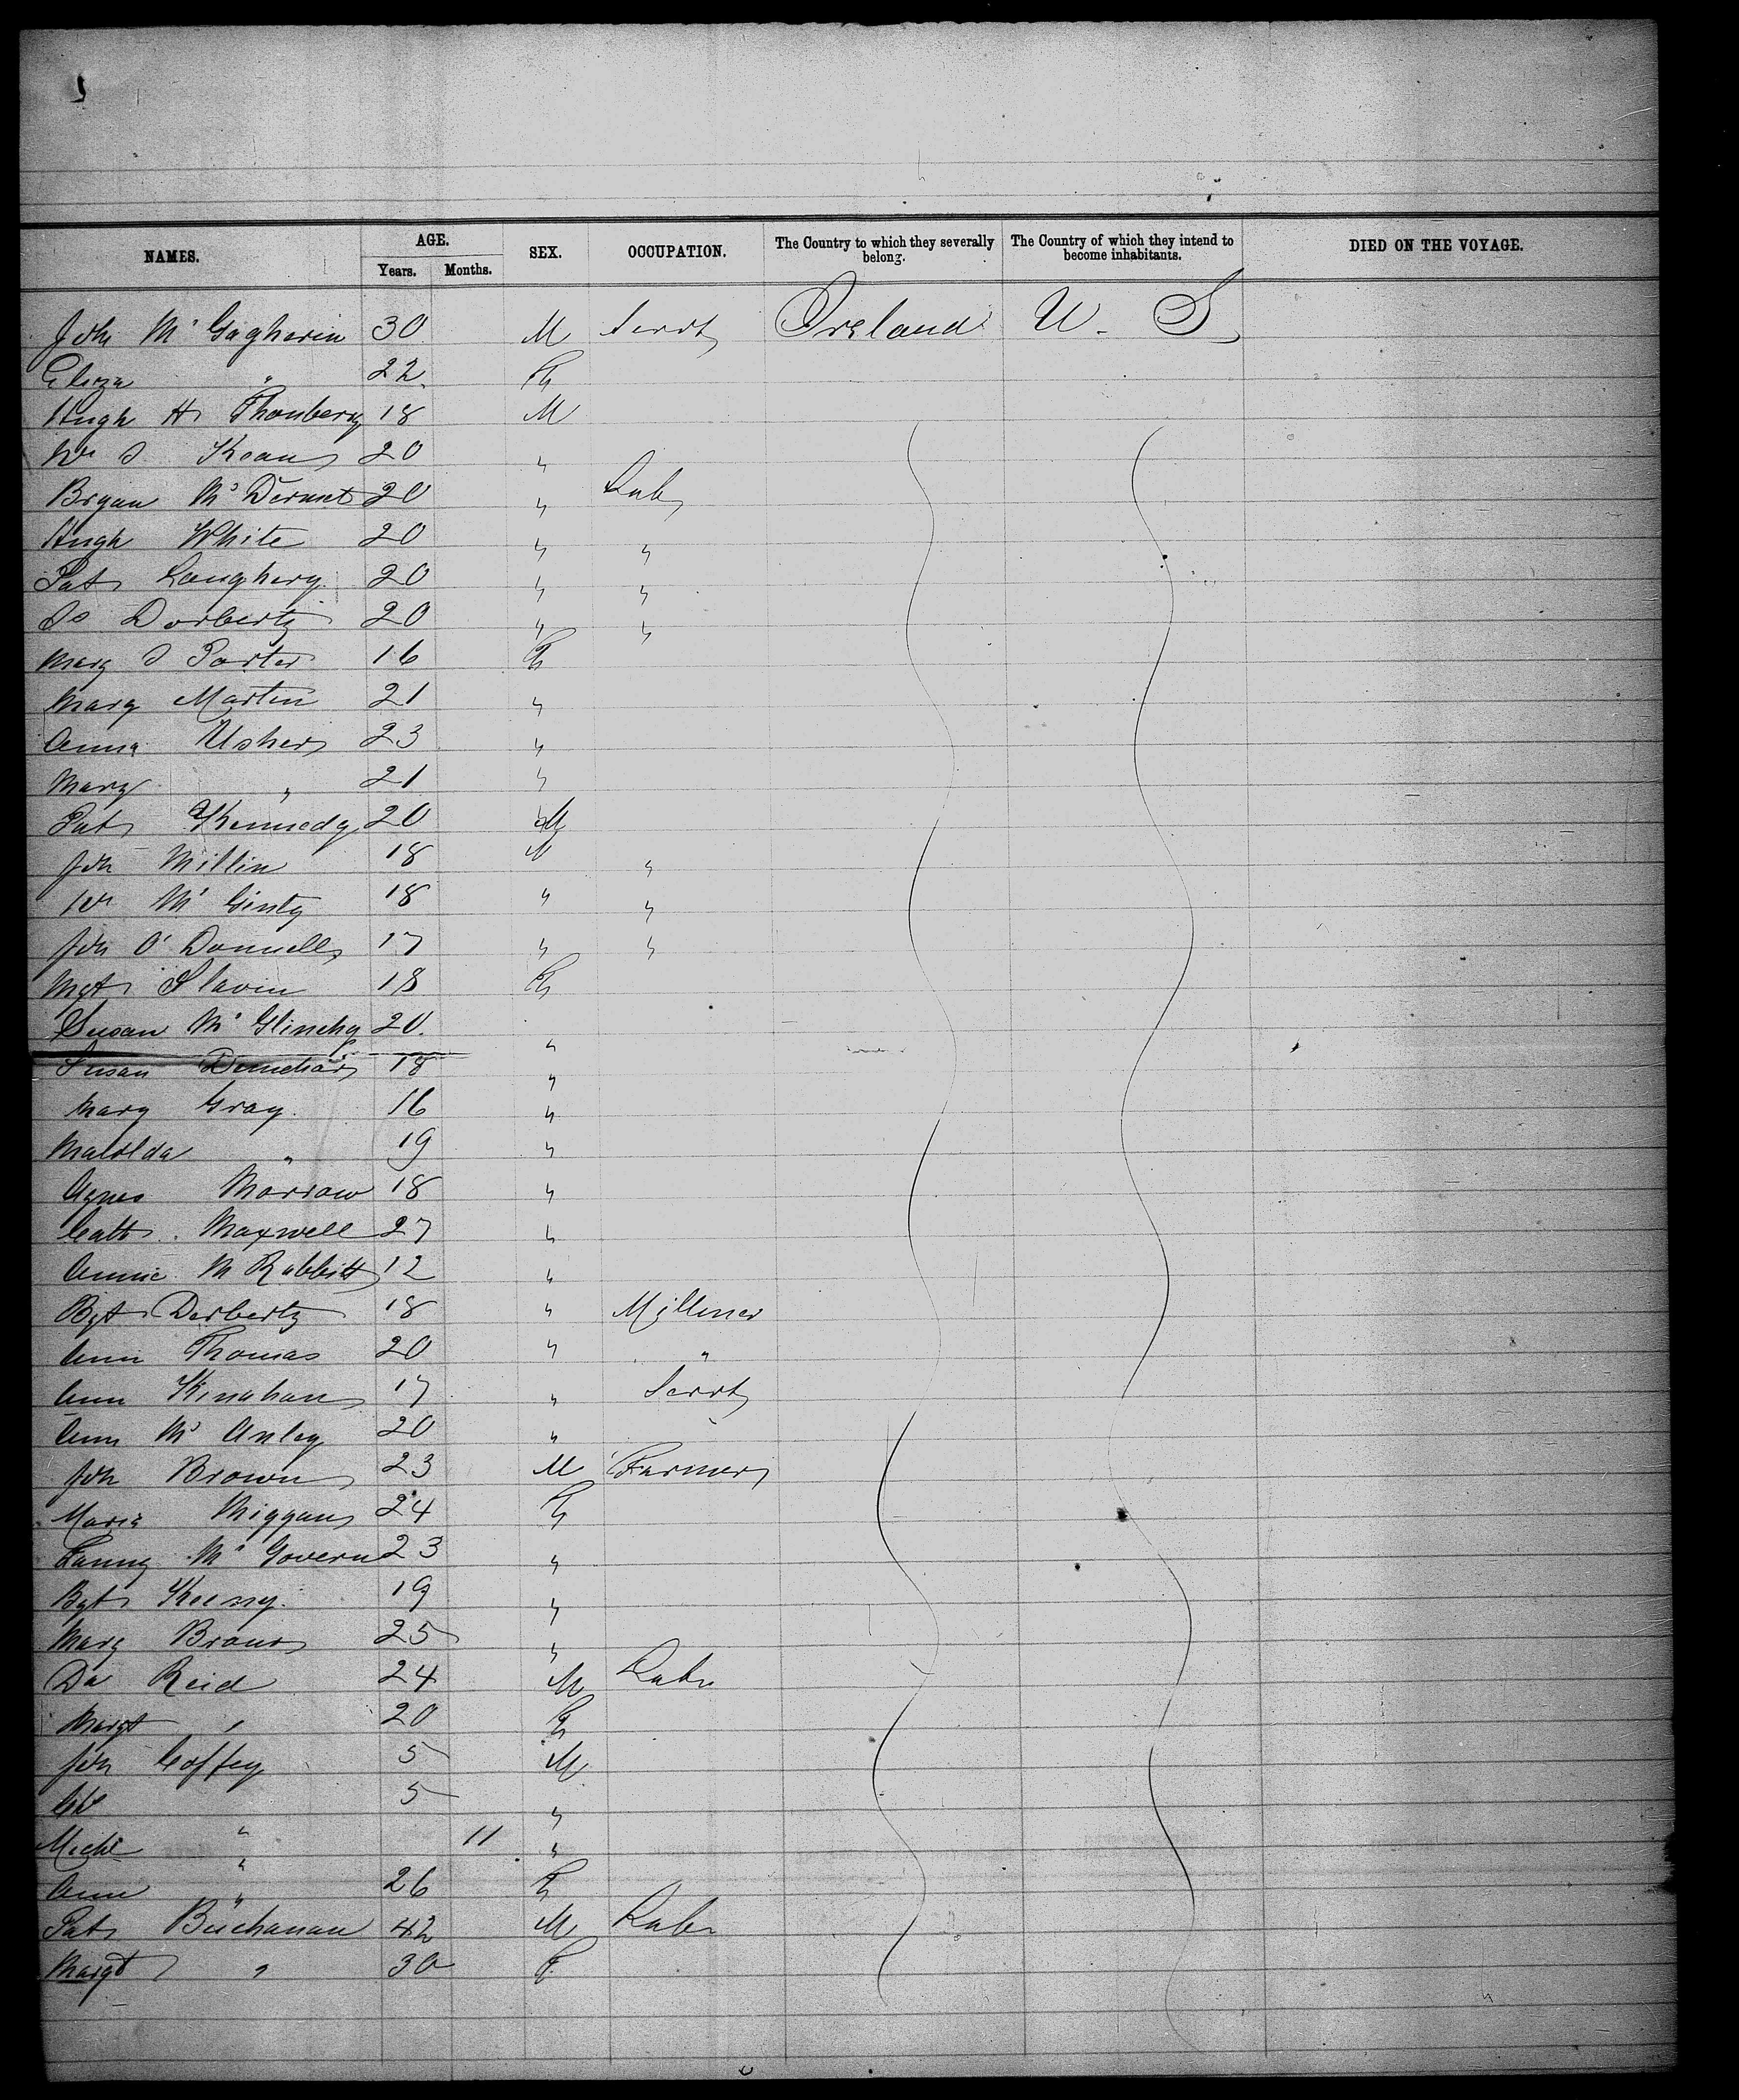 NAMES. AGE. SEX. OCCUPATION. The Country to which they severally belong. The Country of which they intend to become inhabitants. DIED ON THE VOYAGE.
Years. Months.
Joh Mc Gagherin 30 M Servt Ireland U. S
Eliza " 22 F
Hugh H Thonberry 18 M
Wm J Kean 20 "
Bryan Mc Dermt 20 " Lab
Hugh White 20 " "
Pat Loughery 20 " "
Do Dorberty 20 " "
Mary J Porter 16 F
Mary Martin 21 "
Anna Usher 23 "
Mary " 21 "
Pat Kennedy 20 M
Joh Millin 18 M "
Wm Mc Ginty 18 " "
Joh O'Donnell 17 " "
Mgt Slavin 18 F
Susan Mc Glinchy 20. "
Susan 18 "
Mary Gray 16 "
Matilda " 19 "
Agnes Morrow 18 "
Cath Maxwell 27 "
Annie Mc Rabbitt 12 "
Bgt Derberty 18 " Milliner
Ann Thomas 20 " "
Ann Kinahan 17 " Servt
Ann Mc Anley 20 "
Joh Brown 23 M Farmer
Maria Miggan 24 F
Fanny Mc Govern 23 "
Bgt 19 "
Mary Brown 25 "
Da Reid 24 M Labr
Margt " 20 F
Joh Coffey 5 M
5 "
Michl " 11 "
Ann " 26 F
Pat Buchanan 42 M Labr
Margt " 30 F